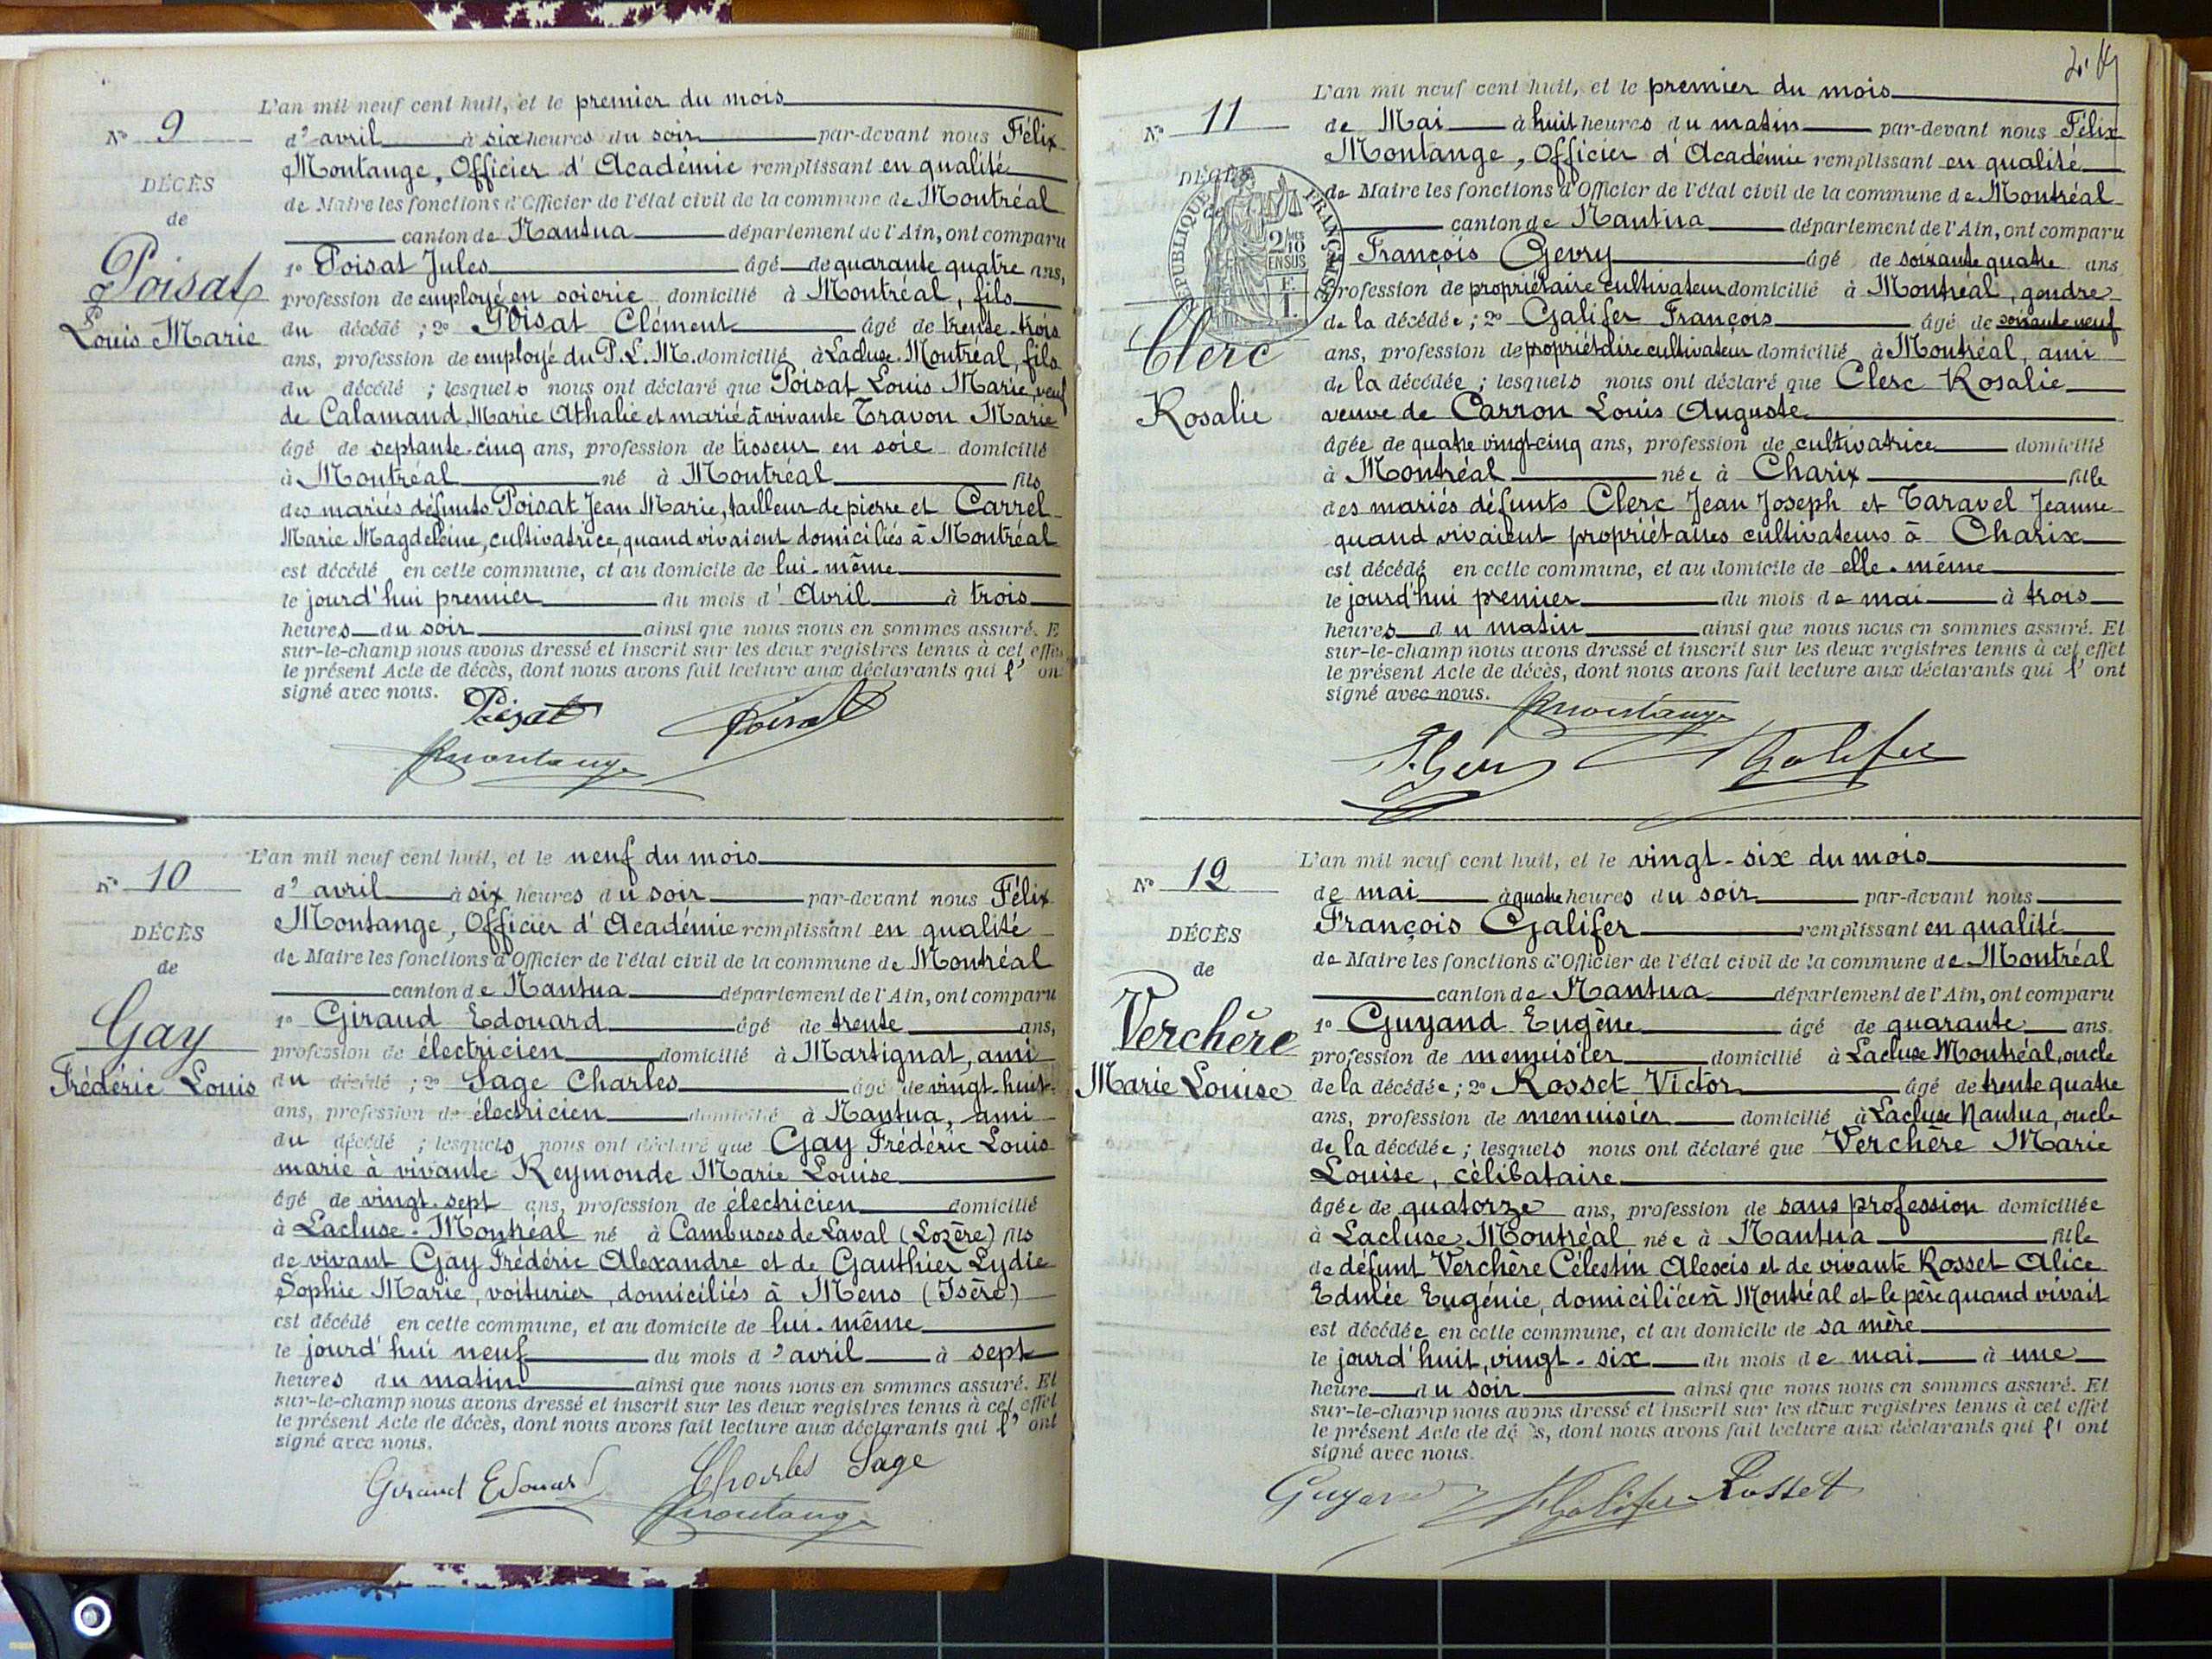 L'an mil neuf cent huit, et le premier du mois
N° 9
d'avril à six heures du soir par-devant nous Félix
Montange, Officier d'Académie remplissant en qualité
DÉCÈS
de Maire les fonctions d'Officier de l'état civil de la commune de Montréal
de
canton de Nantua département de l'Ain, ont comparu
Poisat
Louis Marie
1° Poisat Jules âgé de quarante quatre ans,
profession de employé en soierie domicilié à Montréal, fils
du décédé ; 2° Poisat Clément âgé de trente-trois
ans, profession de employé du P.L.M. domicilié à Lacluse-Montréal, fils
du décédé ; lesquels nous ont déclaré que Poisat Louis Marie, veuf
de Calamand Marie Athalie et marié à vivante Travon Marie
âgé de septante-cinq ans, profession de tisseur en soie domicilié
à Montréal né à Montréal fils
des mariés défunts Poisat Jean Marie, tailleur de pierre et Carrel
Marie Magdeleine, cultivatrice, quand vivaient domiciliés à Montréal
est décédé en cette commune, et au domicile de lui-même
le jourd'hui premier du mois d'Avril à trois
heures du soir ainsi que nous nous en sommes assuré. E
sur-le-champ nous avons dressé et inscrit sur les deux registres tenus à cet effet
le présent Acte de décès, dont nous avons fait lecture aux déclarants qui l' on
signé avec nous.
Poisat Poisat
FMontange
L'an mil neuf cent huit, et le neuf du mois
N° 10
d'avril à six heures du soir par-devant nous Félix
Montange, Officier d'Académie remplissant en qualité
DÉCÈS
de Maire les fonctions d'Officier de l'état civil de la commune de Montréal
de
canton de Nantua département de l'Ain, ont comparu
Gay
Frédéric Louis
1° Giraud Edouard âgé de trente ans,
profession de électricien domicilié à Martignat, ami
du décédé ; 2° Sage Charles âgé de vingt-huit
ans, profession de électricien domicilié à Nantua, ami
du décédé ; lesquels nous ont déclaré que Gay Frédéric Louis
marie à vivante Reymonde Marie Louise
âgé de vingt-sept ans, profession de électricien domicilié
à Lacluse-Montréal né à Cambuses de Laval (Lozère) fils
de vivant Gay Frédéric Alexandre et de Gauthier Lydie
Sophie Marie, voiturier, domiciliés à Mens (Isère)
est décédé en cette commune, et au domicile de lui-même
le jourd'hui neuf du mois d'avril à sept
heures du matin ainsi que nous nous en sommes assuré. Et
sur-le-champ nous avons dressé et inscrit sur les deux registres tenus à cet effet
le présent Acte de décès, dont nous avons fait lecture aux déclarants qui l' ont
signé avec nous.
Giraud Edouard Charles Sage
FMontange
L'an mil neuf cent huit, et le premier du mois
N° 11
de Mai à huit heures du matin par-devant nous Félix
Montange, Officier d'Académie remplissant en qualité
DÉCÈS
de Maire les fonctions d'Officier de l'état civil de la commune de Montréal
de
canton de Nantua département de l'Ain, ont comparu
RÉPUBLIQUE FRANÇAISE
2/10 EN SUS
Clerc
Rosalie
François Gevry âgé de soixante quatre ans
profession de propriétaire cultivateur domicilié à Montréal, gendre
de la décédée ; 2° Galifer François âgé de soixante neuf
ans, profession de propriétaire cultivateur domicilié à Montréal, ami
de la décédée ; lesquels nous ont déclaré que Clerc Rosalie
veuve de Carron Louis Auguste
âgée de quatre vingt-cinq ans, profession de cultivatrice domicilié
à Montréal née à Charix fille
des mariés défunts Clerc Jean Joseph et Taravel Jeanne
quand vivaient propriétaires cultivateurs à Charix
est décédé en cette commune, et au domicile de elle-même
le jourd'hui premier du mois de mai à trois
heures du matin ainsi que nous nous en sommes assuré. Et
sur-le-champ nous avons dressé et inscrit sur les deux registres tenus à cet effet
le présent Acte de décès, dont nous avons fait lecture aux déclarants qui l' ont
signé avec nous.
FMontange
Galifer
L'an mil neuf cent huit, et le vingt-six du mois
N° 12
de mai à quatre heures du soir par-devant nous
François Galifer remplissant en qualité
DÉCÈS
de Maire les fonctions d'Officier de l'état civil de la commune de Montréal
de
canton de Nantua département de l'Ain, ont comparu
Verchère
Marie Louise
1° Guyand Eugène âgé de quarante ans.
profession de menuisier domicilié à Lacluse Montréal, oncle
de la décédée ; 2° Rosset Victor âgé de trente quatre
ans, profession de menuisier domicilié à Lacluse Nantua, oncle
de la décédée ; lesquels nous ont déclaré que Verchère Marie
Louise, célibataire
âgée de quatorze ans, profession de sans profession domiciliée
à Lacluse Montréal née à Nantua fille
de défunt Verchère Célestin Alexis et de vivante Rosset Alice
Edmée Eugénie, domiciliée à Montréal et le père quand vivait
est décédée en cette commune, et au domicile de sa mère
le jourd'huit, vingt-six du mois de mai à une
heure du soir ainsi que nous nous en sommes assuré. Et
sur-le-champ nous avons dressé et inscrit sur les deux registres tenus à cet effet
le présent Acte de décès, dont nous avons fait lecture aux déclarants qui l' ont
signé avec nous.
Guyand Galifer Rosset